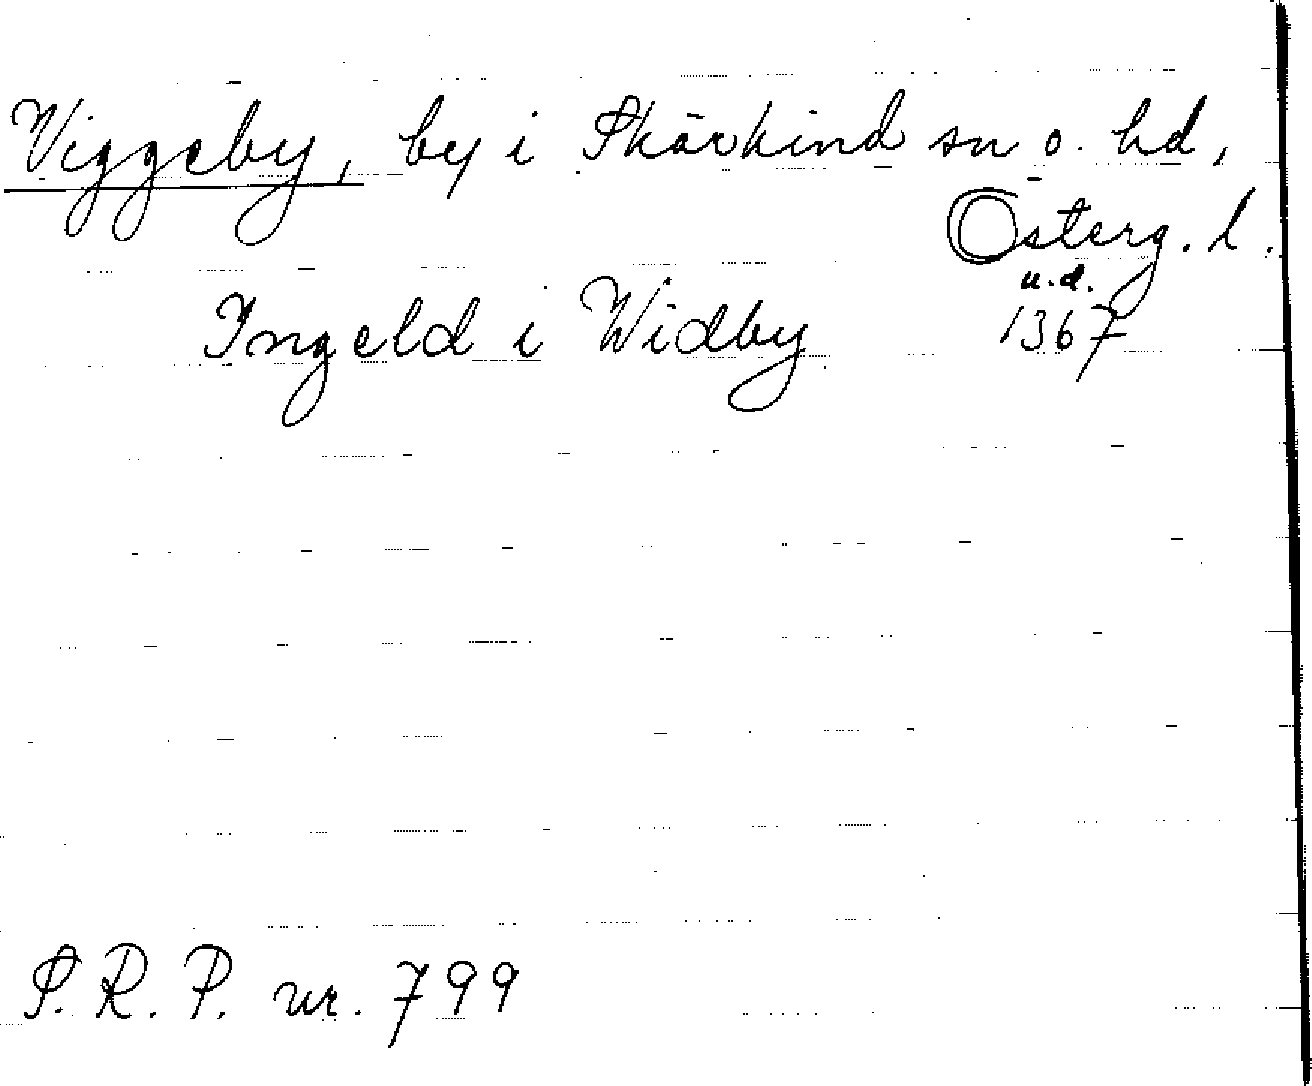 Viggeby, by i Skärkind sn o. hd,
Österg. l.
u.d.
Ingeld i Widby 1367
S.R.P. nr. 799